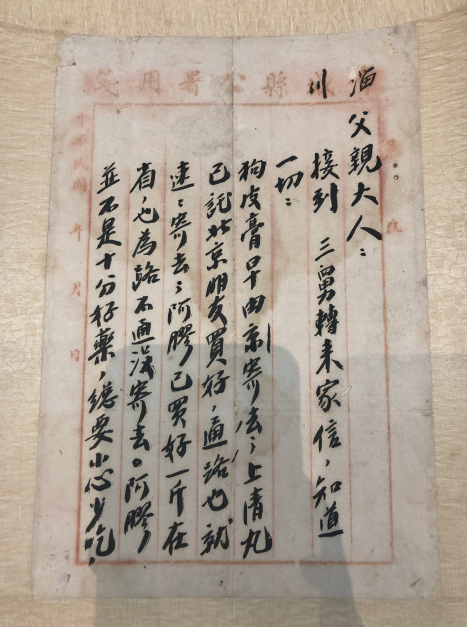 縣公署用箋
川
父親大人：
接到 三舅轉来家信，知道
一切：
狗皮膏早由京寄去；上清丸
已託北京朋友買好，通路也就
速：寄去；阿膠已買好一斤在
省，也為路不通没寄去。阿膠
並不是十分好藥，總要小心少吃，
中華民國 年 月 日
號